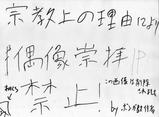 宗教上の理由により
偶像崇拝
禁止!
この画像は削除
されました
by